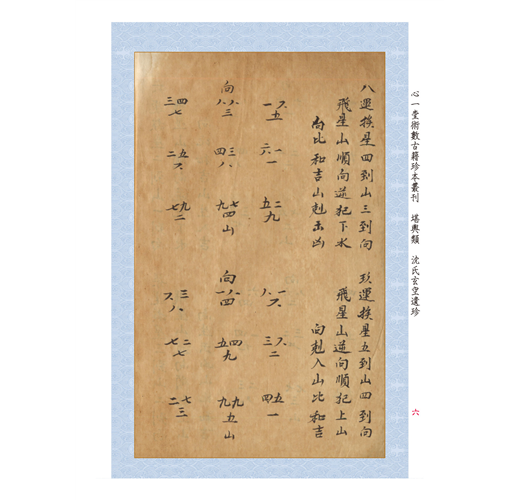 心一堂術數古籍珍本叢刊 堪輿類 沈氏玄空遺珍
六
八運挨星四到山三到向
飛星山順向逆犯下水
向比和吉山剋出凶
一六
五
六一
一
五二
九
向
八八
三
四三
八
九七
四
山
三四
七
二五
六
七九
二
玖運挨星五到山四到向
飛星山逆向順犯上山
向剋入山比和吉
八一
六
三六
二
四五
一
向
一八
四
五四
九
九九
五
山
六三
八
七二
七
二七
三